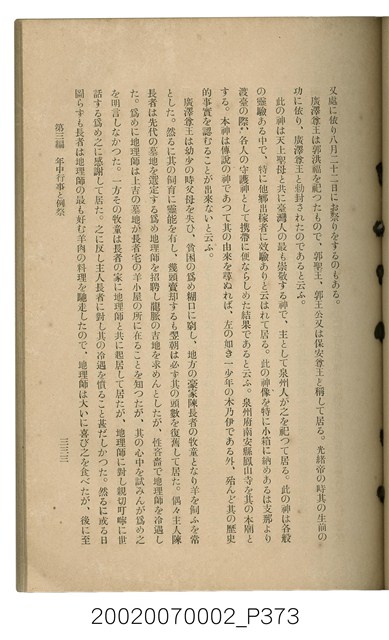 又處に依り八月二十二日にお祭りをするのもある。
廣澤尊王は郭洪福を祀つたもので、郭聖王、郭王公又は保安尊王と稱して居る。光緒帝の時其の生前の
功に依り、廣澤尊王と勅封されたのであると云ふ。
此の神は天上聖母と共に臺灣人の最も崇敬する神で、主として泉州人が之を祀つて居る。此の神は各般
の靈驗ある中で、特に他鄕出稼者に效驗ありと云はれて居る。此の神像を特に小箱に納めあるは支那より
渡臺の際、各人の守護神として携帶に便ならしめた結果であると云ふ。泉州府南安縣鳳山寺を其の本廟と
する。本神は傳說の神であつて其の由來を尋ぬれば、左の如き一少年の木乃伊である外、殆んど其の歷史
的事實を認むることが出來ないと云ふ。
廣澤尊王は幼少の時父母を失ひ、貧困の爲め糊口に窮し、地方の豪家陳長者の牧童となり羊を飼ふを常
とした。然るに其の飼育に靈能を有し、幾頭賣却するも翌朝は必ず其の頭數を復舊して居た。偶々主人陳
長者は先代の墓地を選定する爲め地理師を招聘し龍脈の吉地を求めんとしたが、性吝嗇で地理師を冷遇し
た。爲めに地理師は上吉の墓地が長者宅の羊小屋の所に在ることを知つたが、其の心中を試みんが爲め之
を明言しなかつた。一方その牧童は長者の家に地理師と共に起居して居たが、地理師に對し親切叮嚀に世
話する爲め之に感謝して居た。之に反し主人長者に對し其の冷遇を憤ること甚だしかつた。然るに或る日
圖らずも長者は地理師の最も好む羊肉の料理を馳走したので、地理師は大いに喜び之を食べたが、後に至
第三編　年中行事と例祭
三三三
20020070002_P373